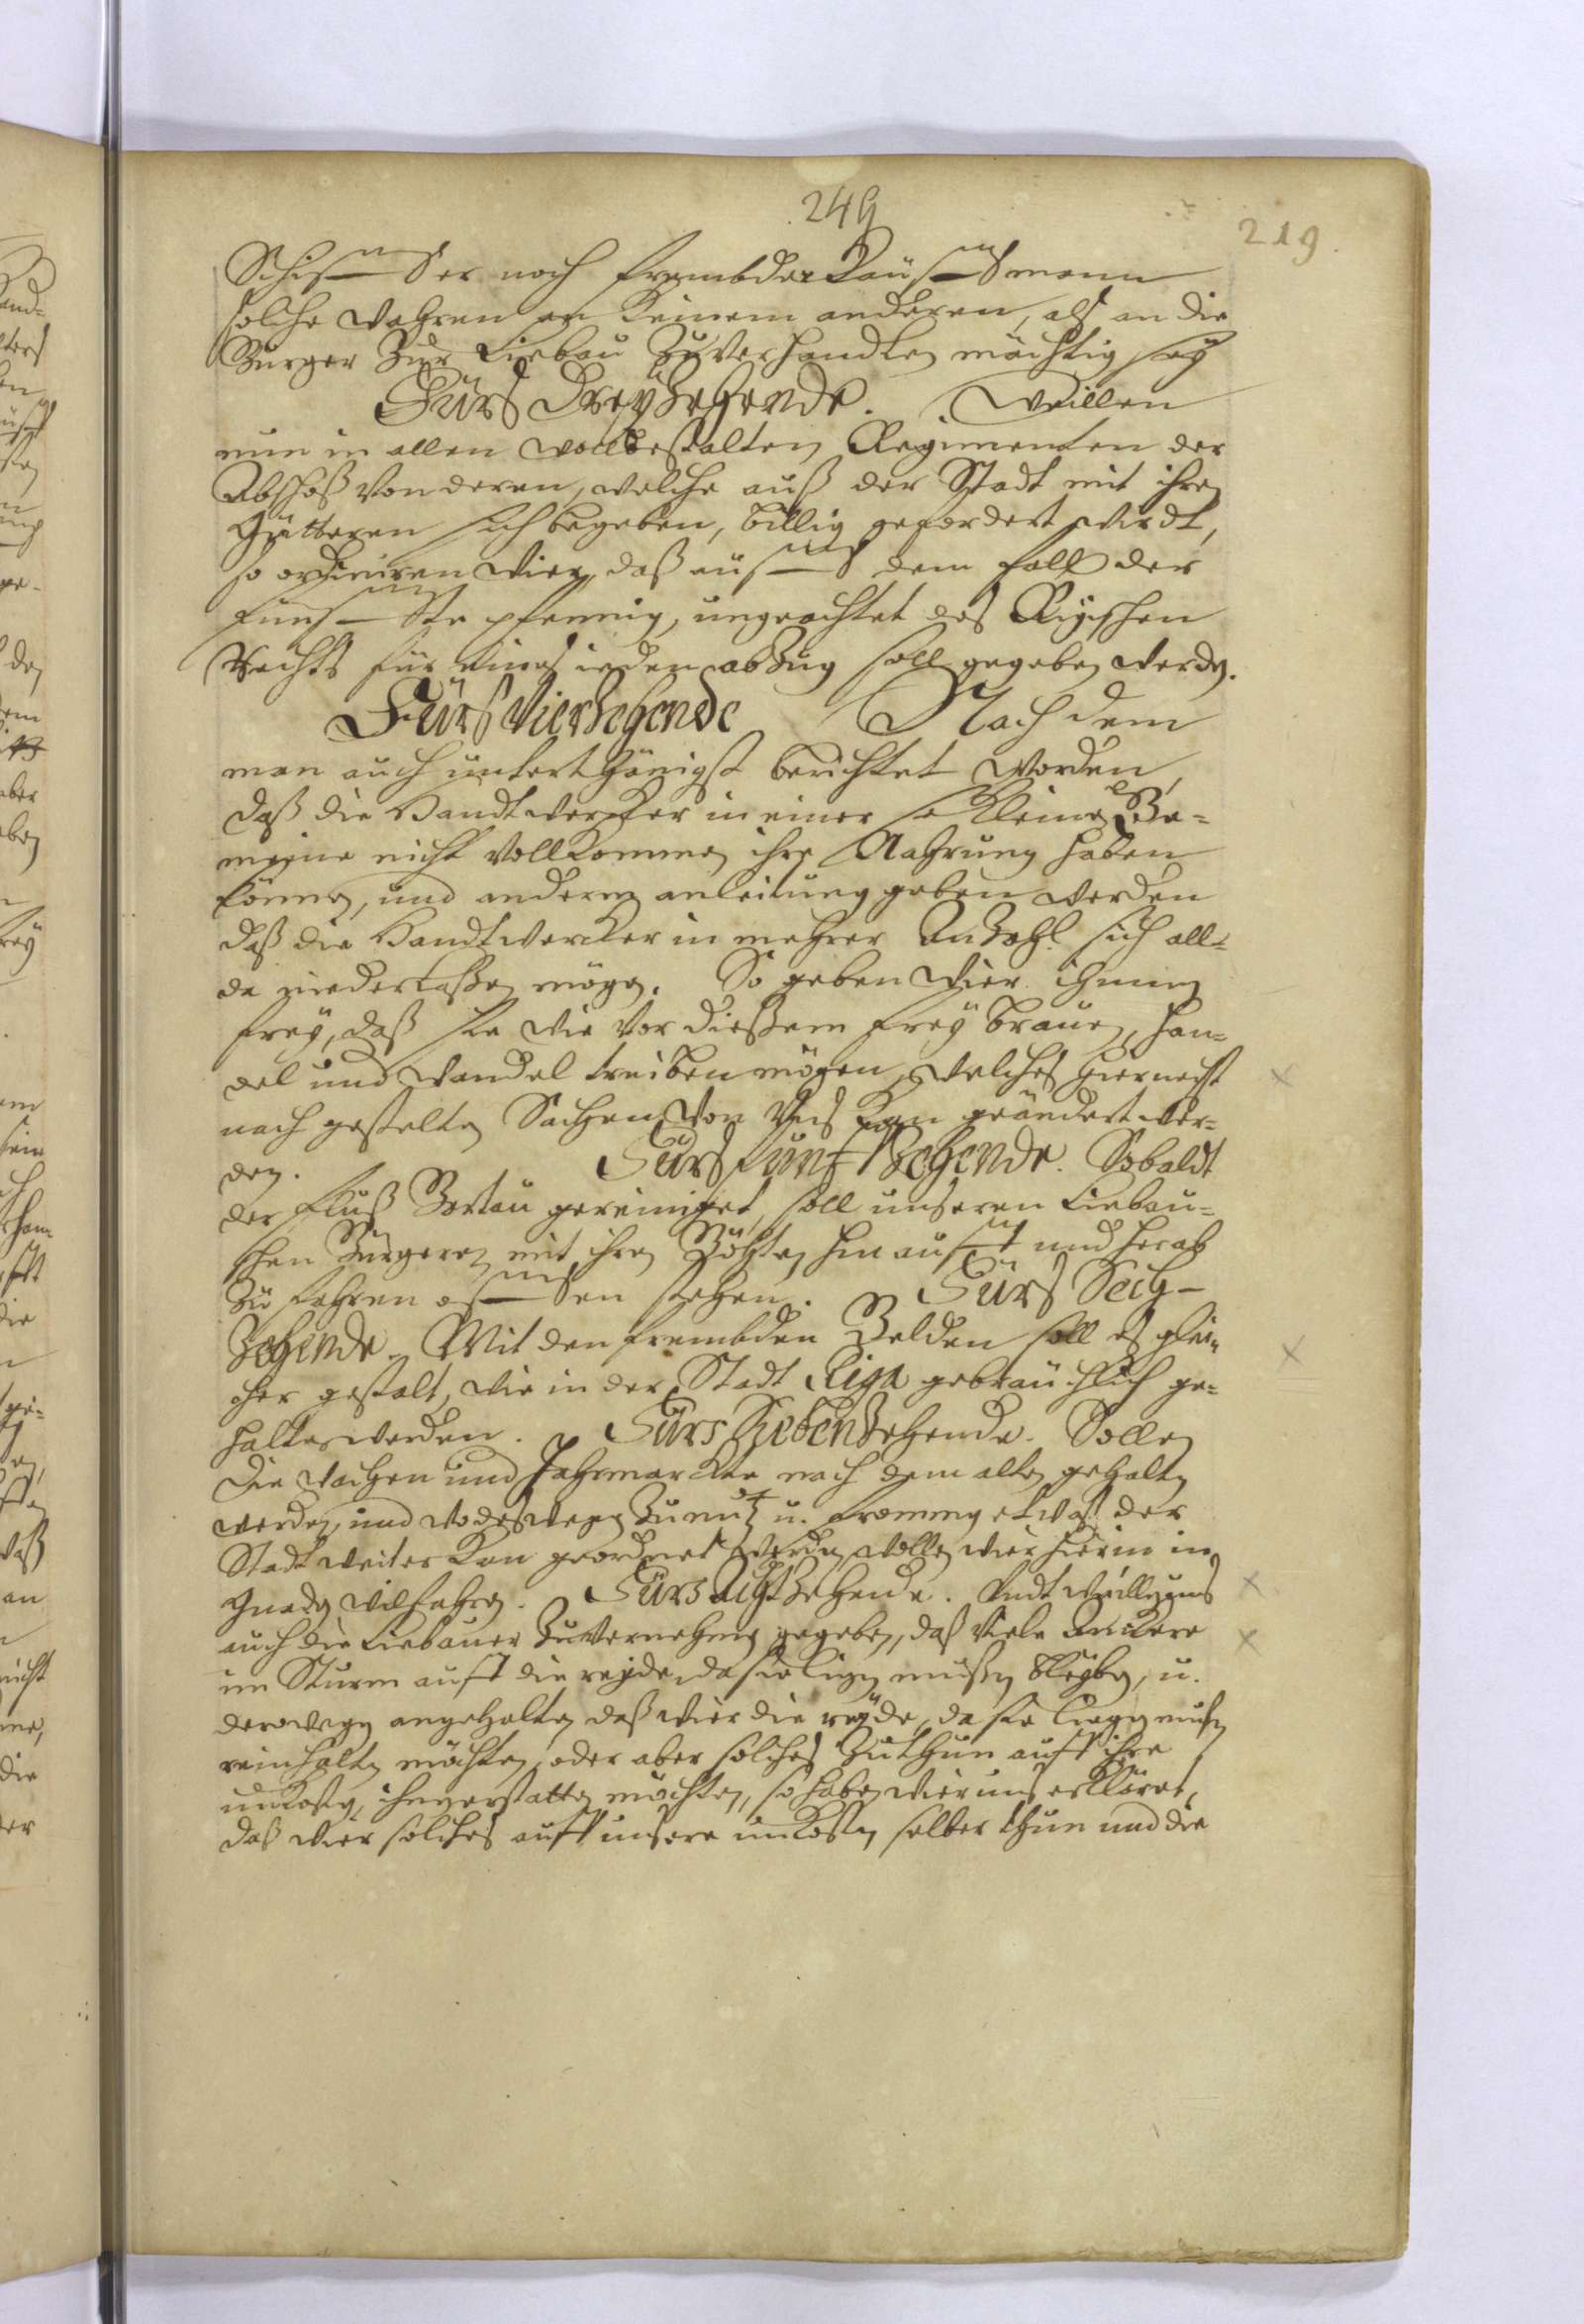 249
219.
Schiffer noch frembder Kauffmann
solche Wahren an keinem anderen, alß an die
Burger Zur Liebau Zuverhandlen mächtig sey
Fürs Dreyzehende. Weillen
nun in allen wollbestalten Regimenten der
Abschoß von deren, welche auß der Stadt mit ihren
Gütteren sich begeben, billig gefordert wirdt,
so ordiniren Wier, daß auff dem fall der
funffte pfennig, ungeachtet des Rigischen
Rechts für eines ieden abzug soll gegeben werden.
Fürs Vierzehende Nach dem
man auch unterthänigst berichtet worden,
daß die Handtwercker in einer so kleinen Ge-
meine nicht vollkommen ihre Nahrung haben
können, und anderen anleitung geben werden
daß die Handtwercker in mehrer Anzahl sich all-
da niederlaßen mögen. So geben Wier ihnnen
frey, daß sie wie vor dießem frey brauen, han-
del und wandel treiben mögen, welches hiernechst
nach gestelten Sachen von Uns kan geändert wer-
den. Fürs Funffzehende. Sobaldt
der fluß Bartau gereiniget, soll unseren Liebau-
schen Bürgeren mit ihren Böhten hinauff und herab
Zu fahren offen stehen. Fürs Sech-
Zehende. Mit den frembden Gelden soll es glei-
cher gestalt, wie in der Stadt Riga gebräuchlich ge-
halten werden. Fürs Siebenzehende. Sollen
die Wochen und Jahrmarckte nach dem alten gehalten
werden, und wodeswegen Zu nutz u. frommen etwaß der
Stadt weiter kan geordnet werden, wollen wier hierin in
Gnaden wilfahren. Fürs Achtzehende. Undt weillen uns
auch die Liebauer Zuvernehmen gegeben, daß viele Anckere
im Sturm auff die reyde, da sie ligen müßen bleyben, u.
derowegen angehalten daß wier die reyde, da sie liegen müßen
rein halten möchten, oder aber solches Zuthun auff ihre
unkosten, ihnen verstatten möchten, so haben wier uns erkläret,
daß wier solches auff unsere unkosten selber thun und die